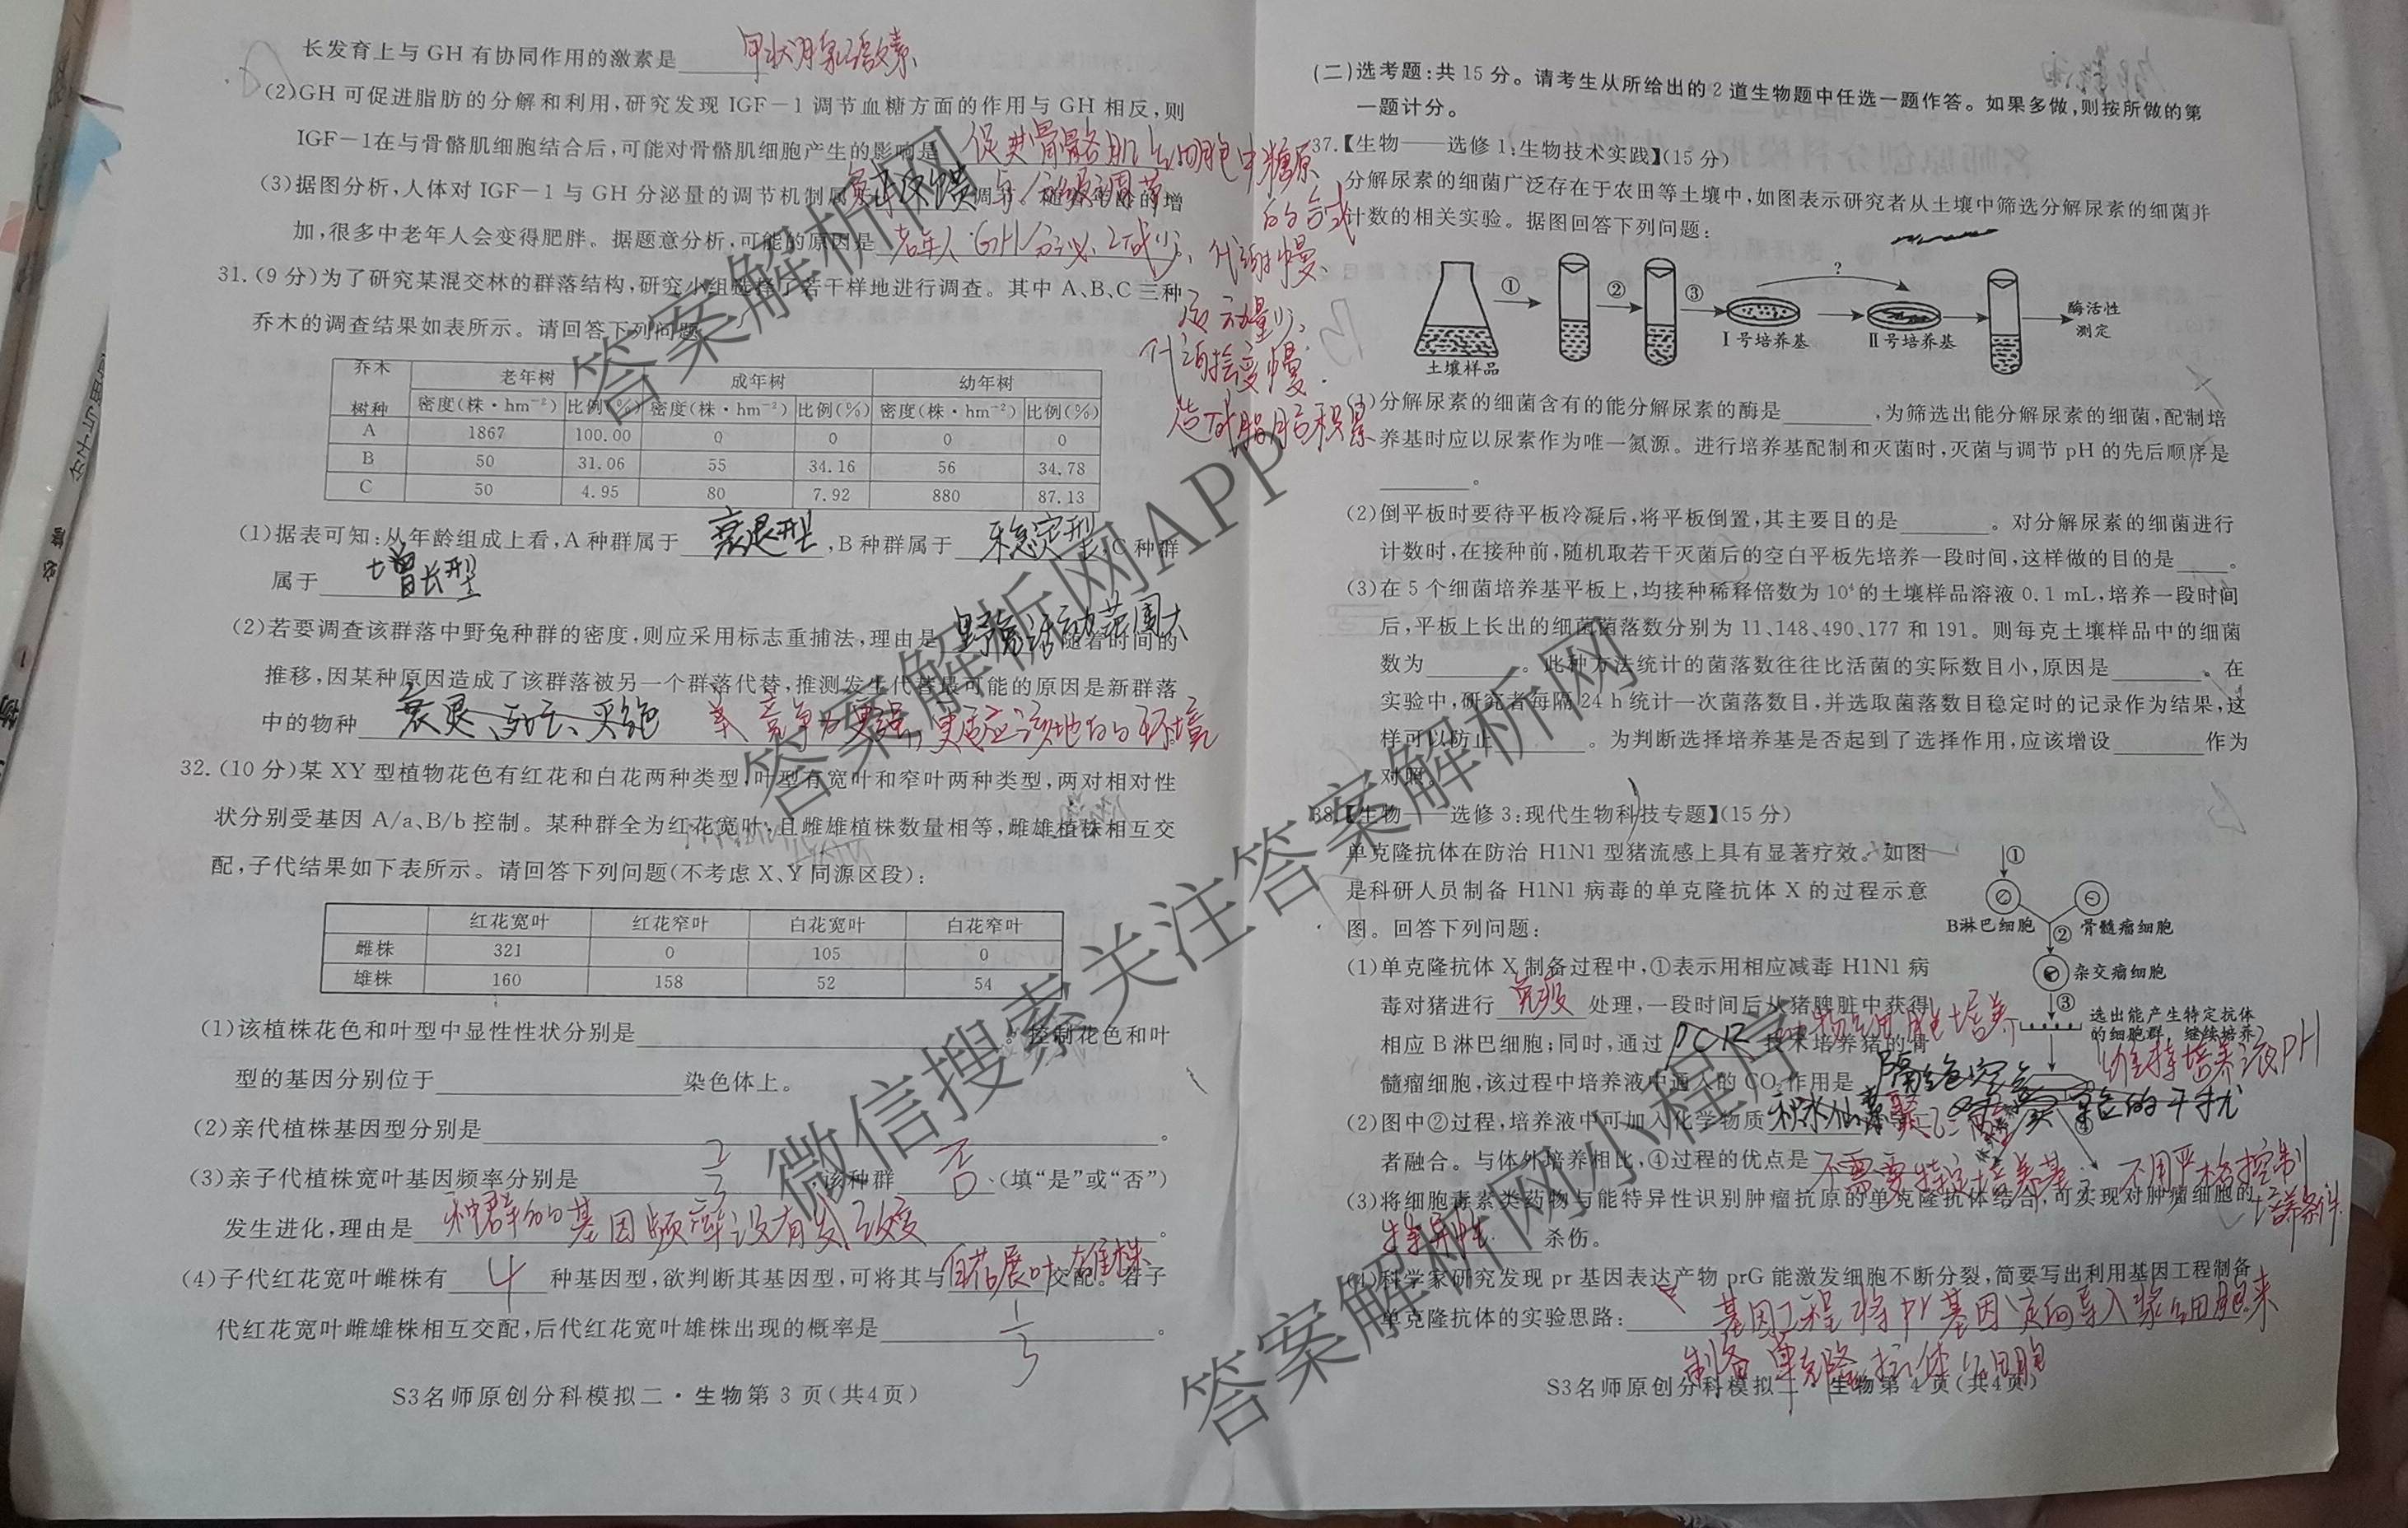 长发育上与 GH 有协同作用的激素是 甲状腺激素
(2)GH 可促进脂肪的分解和利用,研究发现 IGF-1 调节血糖方面的作用与 GH 相反,则
IGF-1在与骨骼肌细胞结合后,可能对骨骼肌细胞产生的影响是 促进骨骼肌细胞中糖原
的合成
(3)据图分析,人体对 IGF-1 与 GH 分泌量的调节机制属 负反馈与分级调节 调节。随着年龄的增
加,很多中老年人会变得肥胖。据题意分析,可能的原因是 老年人GH分泌减少、代谢慢、
运动量少、
代谢变慢.
造成脂肪积累
31.(9 分)为了研究某混交林的群落结构,研究小组选择了若干样地进行调查。其中 A、B、C 三种
乔木的调查结果如表所示。请回答下列问题:
乔木树种 老年树 成年树 幼年树
密度(株·hm⁻²) 比例(%) 密度(株·hm⁻²) 比例(%) 密度(株·hm⁻²) 比例(%)
A 1867 100.00 0 0 0 0
B 50 31.06 55 34.16 56 34.78
C 50 4.95 80 7.92 880 87.13
(1)据表可知:从年龄组成上看,A 种群属于 衰退型 ,B 种群属于 稳定型 ,C 种群
属于 增长型
(2)若要调查该群落中野兔种群的密度,则应采用标志重捕法,理由是 野兔活动范围大 随着时间的
推移,因某种原因造成了该群落被另一个群落代替,推测发生代替最可能的原因是新群落
中的物种 衰退、死亡、灭绝 竞争力更强,更适应该地的环境
32.(10 分)某 XY 型植物花色有红花和白花两种类型,叶型有宽叶和窄叶两种类型,两对相对性
状分别受基因 A/a、B/b 控制。某种群全为红花宽叶,且雌雄植株数量相等,雌雄植株相互交
配,子代结果如下表所示。请回答下列问题(不考虑 X、Y 同源区段):
红花宽叶 红花窄叶 白花宽叶 白花窄叶
雌株 321 0 105 0
雄株 160 158 52 54
(1)该植株花色和叶型中显性性状分别是 。控制花色和叶
型的基因分别位于 染色体上。
(2)亲代植株基因型分别是 。
(3)亲子代植株宽叶基因频率分别是 2/3 ,该种群 否 (填“是”或“否”)
发生进化,理由是 种群的基因频率没有发生改变 。
(4)子代红花宽叶雌株有 4 种基因型,欲判断其基因型,可将其与 白花宽叶雄株 交配。若子
代红花宽叶雌雄株相互交配,后代红花宽叶雄株出现的概率是 1/3 。
S3名师原创分科模拟二·生物第 3 页(共4页)
(二)选考题:共 15 分。请考生从所给出的 2 道生物题中任选一题作答。如果多做,则按所做的第
一题计分。
37.【生物——选修 1:生物技术实践】(15 分)
分解尿素的细菌广泛存在于农田等土壤中,如图表示研究者从土壤中筛选分解尿素的细菌并
计数的相关实验。据图回答下列问题:
① ② ③ ?
土壤样品 Ⅰ号培养基 Ⅱ号培养基 酶活性
测定
(1)分解尿素的细菌含有的能分解尿素的酶是 ,为筛选出能分解尿素的细菌,配制培
养基时应以尿素作为唯一氮源。进行培养基配制和灭菌时,灭菌与调节 pH 的先后顺序是
。
(2)倒平板时要待平板冷凝后,将平板倒置,其主要目的是 。对分解尿素的细菌进行
计数时,在接种前,随机取若干灭菌后的空白平板先培养一段时间,这样做的目的是 。
(3)在 5 个细菌培养基平板上,均接种稀释倍数为 10⁴ 的土壤样品溶液 0.1 mL,培养一段时间
后,平板上长出的细菌菌落数分别为 11、148、490、177 和 191。则每克土壤样品中的细菌
数为 。此种方法统计的菌落数往往比活菌的实际数目小,原因是 。在
实验中,研究者每隔 24 h 统计一次菌落数目,并选取菌落数目稳定时的记录作为结果,这
样可以防止 。为判断选择培养基是否起到了选择作用,应该增设 作为
对照。
38.【生物——选修 3:现代生物科技专题】(15 分)
单克隆抗体在防治 H1N1 型猪流感上具有显著疗效。如图
是科研人员制备 H1N1 病毒的单克隆抗体 X 的过程示意
图。回答下列问题:
①
B淋巴细胞 ② 骨髓瘤细胞
杂交瘤细胞
③
选出能产生特定抗体
的细胞群 继续培养
④
(1)单克隆抗体 X 制备过程中,①表示用相应减毒 H1N1 病
毒对猪进行 免疫 处理,一段时间后从猪脾脏中获得
相应 B 淋巴细胞;同时,通过 PCR 动物细胞培养 技术培养猪的骨
髓瘤细胞,该过程中培养液中通入的 CO₂ 作用是 隔绝空气 维持培养液PH
(2)图中②过程,培养液中可加入化学物质 聚乙二醇
者融合。与体外培养相比,④过程的优点是 不需要特定培养基、不用严格控制
培养条件.
(3)将细胞毒素类药物与能特异性识别肿瘤抗原的单克隆抗体结合,可实现对肿瘤细胞的
特异性 杀伤。
(4)科学家研究发现 pr 基因表达产物 prG 能激发细胞不断分裂,简要写出利用基因工程制备
单克隆抗体的实验思路: 基因工程将pr基因定向导入浆细胞来
制备单克隆抗体细胞
S3名师原创分科模拟二 生物第 4 页(共4页)
答案解析网
答案解析网APP
微信搜索关注答案解析网
答案解析网小程序